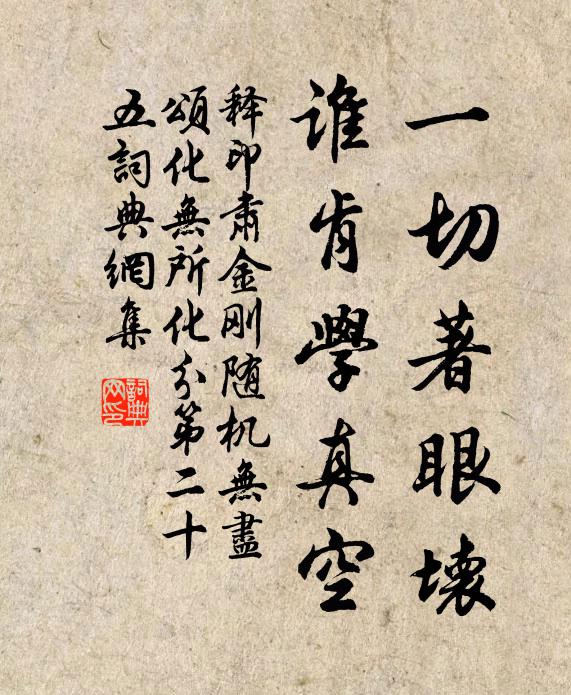 一切著眼壞
誰肯學真空
释印肃金刚随机無盡
頌化無所化分第二十
五詞典網集
詞典网印